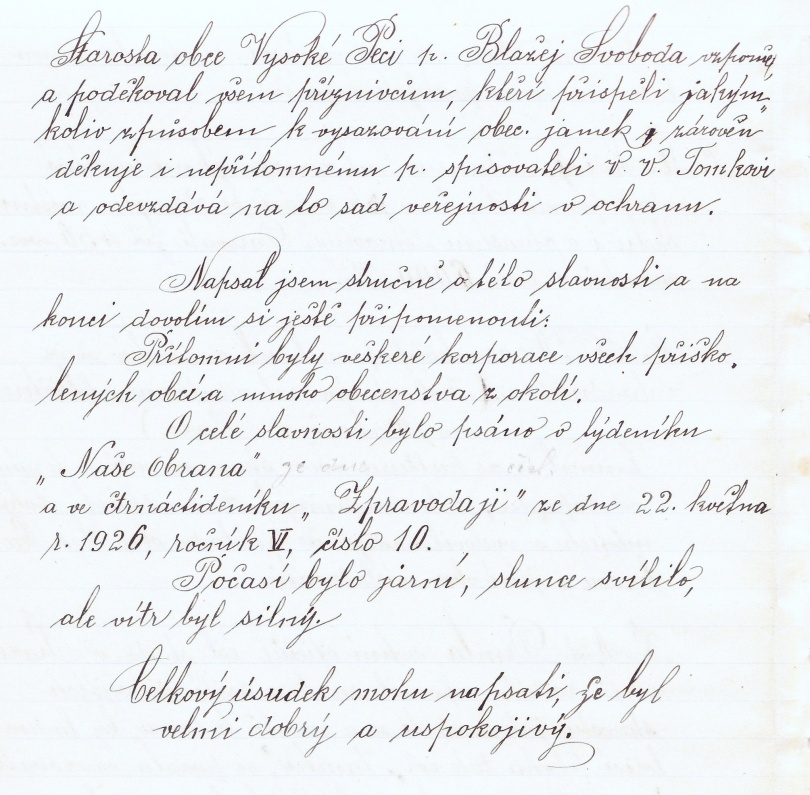 Starosta obce Vysoké Peci p. Blažej Svoboda vzpomněl
a poděkoval všem příznivcům, kteří přispěli jakým-
koliv způsobem k vysazování obec. janek i zároveň
děkuje i nepřítomnému p. spisovateli V. V. Tomkovi
a odevzdává na to sad veřejnosti v ochranu.
Napsal jsem stručně o této slavnosti a na
konci dovolím si ještě připomenouti:
Přítomni byly veškeré korporace všech příško.
lených obcí a mnoho obecenstva z okolí.
O celé slavnosti bylo psáno v týdeníku
„Naše Obrana“
a ve čtrnáctideníku „Zpravodaji“ ze dne 22. května
r. 1926, ročník VI, číslo 10.
Počasí bylo jarní, slunce svítilo,
ale vítr byl silný.
Celkový úsudek mohu napsati, že byl
velmi dobrý a uspokojivý.